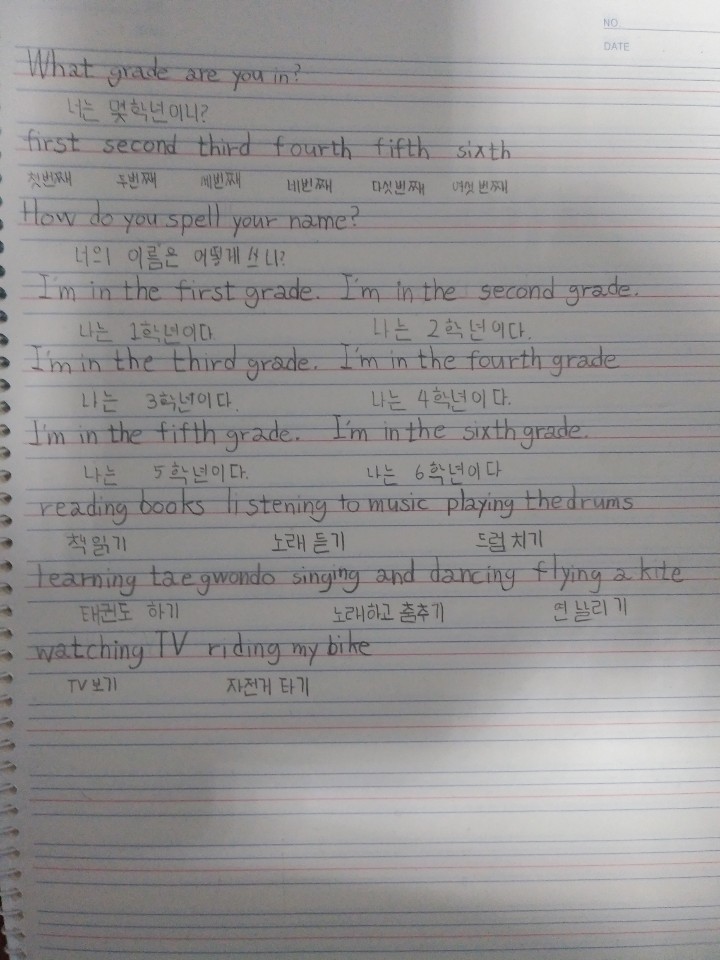 NO.
DATE
What grade are you in?
너는 몇학년이니?
first second third fourth fifth sixth
첫번째 두번째 세번째 네번째 다섯번째 여섯번째
How do you spell your name?
너의 이름은 어떻게 쓰니?
I'm in the first grade. I'm in the second grade.
나는 1학년이다. 나는 2학년이다.
I'm in the third grade. I'm in the fourth grade
나는 3학년이다. 나는 4학년이다.
I'm in the fifth grade. I'm in the sixth grade.
나는 5학년이다. 나는 6학년이다
reading books listening to music playing the drums
책 읽기 노래 듣기 드럼 치기
learning taegwondo singing and dancing flying a kite
태권도 하기 노래하고 춤추기 연 날리기
watching TV riding my bike
TV 보기 자전거 타기